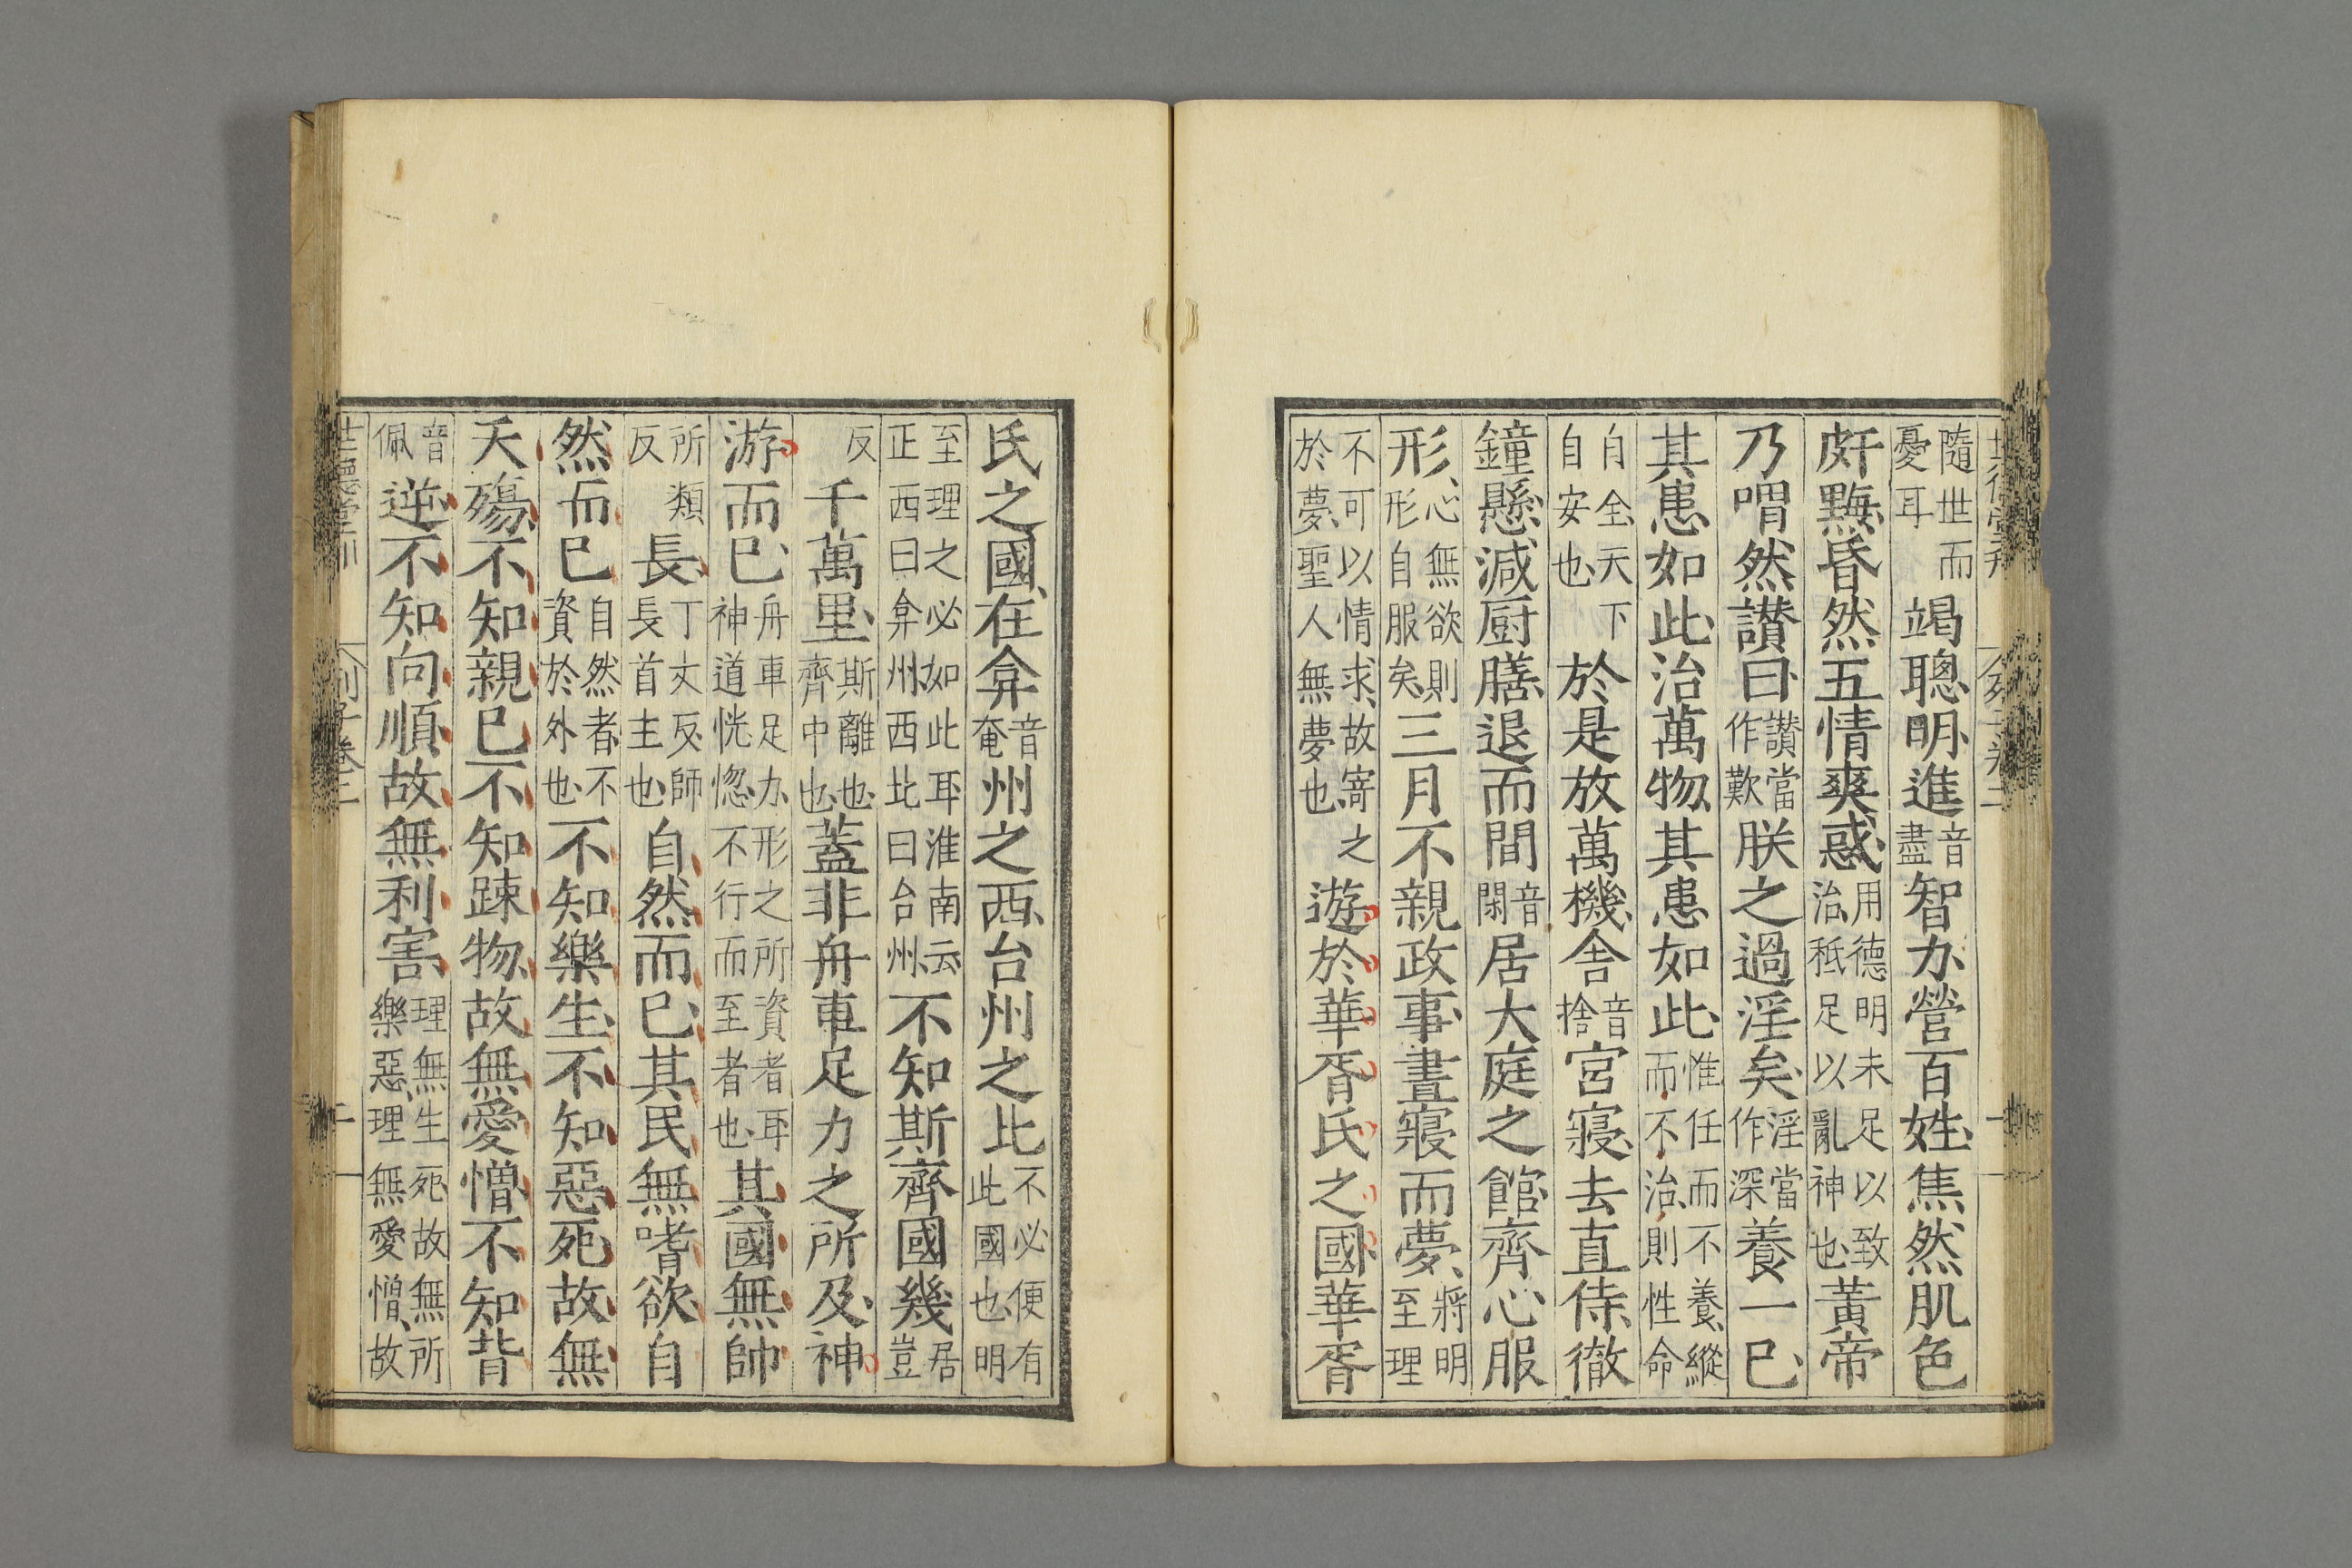 世德堂刊 列子卷二
隨世而憂耳竭聰明進音盡智力營百姓焦然肌色
皯黣昏然五情爽惑用德明未足以致治秖足以亂神也黃帝
乃喟然讃曰讃當作歎朕之過淫矣淫當作深養一已
其患如此治萬物其患如此惟任而不養縱而不治則性命
自全天下自安也於是放萬機舍音捨宮寢去直侍徹
鐘懸減厨膳退而間音閑居大庭之館齊心服
形心無欲則形自服矣三月不親政事晝寢而夢將明至理
不可以情求故寄之於夢聖人無夢也遊於華胥氏之國華胥
氏之國在弇音奄州之西台州之北不必便有此國也明
至理之必如此耳淮南云正西曰弇州西北曰台州不知斯齊國幾居豈
反千萬里斯離也齊中也蓋非舟車足力之所及神
游而已舟車足力形之所資者耳神道恍惚不行而至者也其國無帥
所類反長丁丈反師長首主也自然而已其民無嗜欲自
然而已自然者不資於外也不知樂生不知惡死故無
夭殤不知親已不知踈物故無愛憎不知背
音佩逆不知向順故無利害理無生死故無所樂惡理無愛憎故
世德堂刊 列子卷二 二